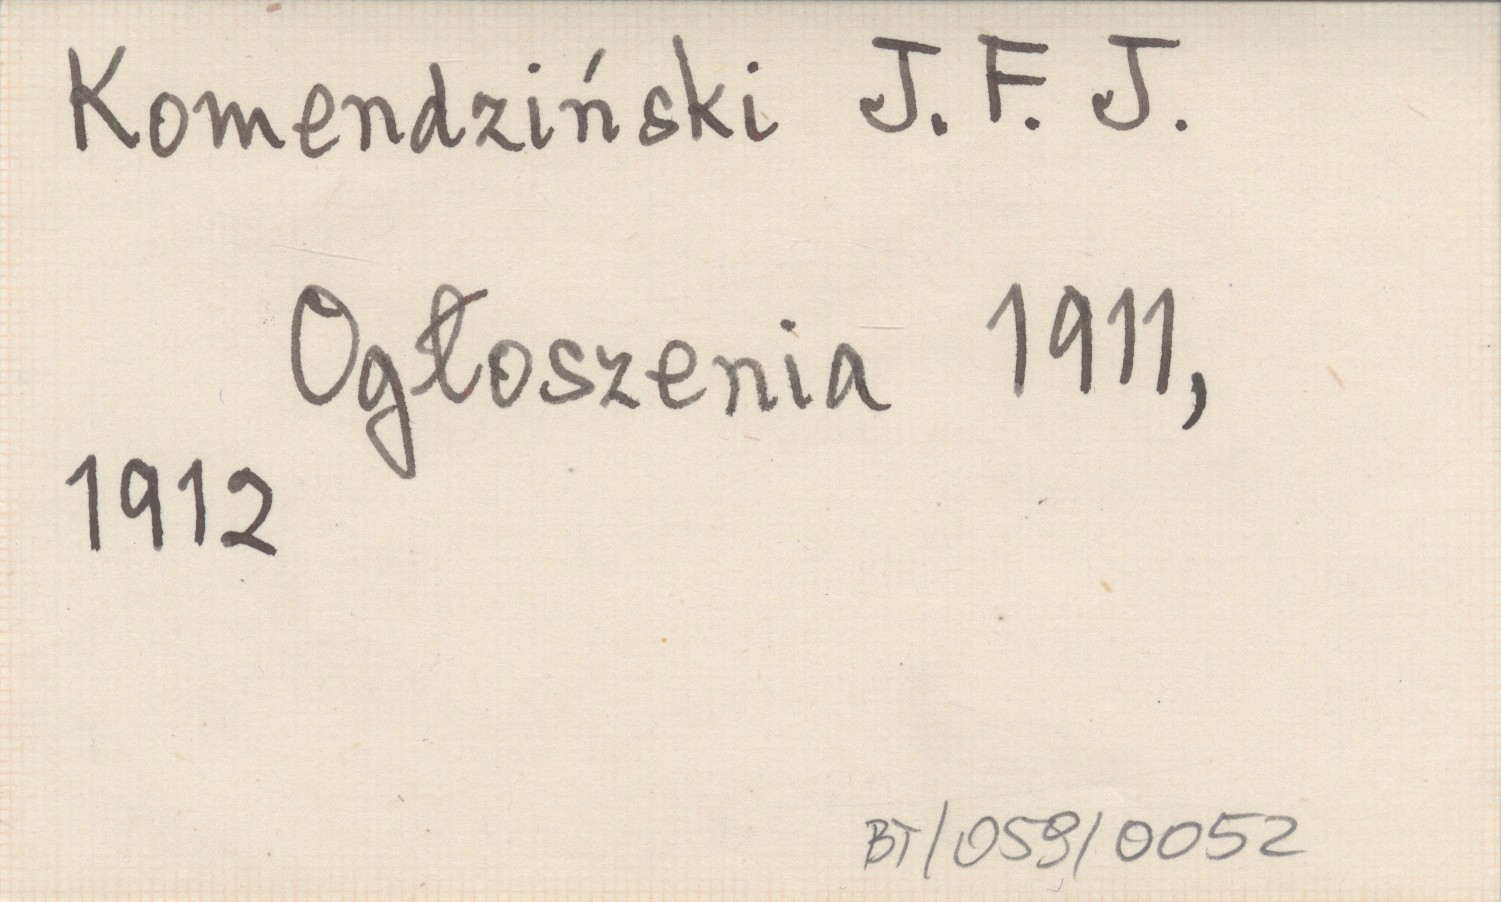 Komendziński J. F. J.
Ogłoszenia 1911,
1912
BT/059/0052